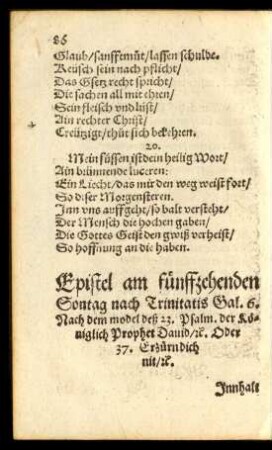 86
Glaub/sanfftmüt/lassen schulde.
Keüsch sein nach pflicht/
Das Gsetz recht spricht/
Die sachen all mit ehren/
Sein fleisch vnd lüst/
Ain rechter Christ/
Creützigt/thüt sich bekehren.
20.
Mein füssen ist dein heilig Wort/
Ain brünnende luceren:
Ein Liecht/das mir den weg weist fort/
So diser Morgensteren.
Inn vns auffgeht/so balt versteht/
Der Mensch die hochen gaben/
Die Gottes Geist den gwiß verheist/
So hoffnung an die haben.
Epistel am fünffzehenden
Sontag nach Trinitatis Gal. 6.
Nach dem model deß 23. Psalm. der Kö-
niglich Prophet Dauid/ꝛc. Oder
37. Erzürn dich
nit/ꝛc.
Innhalt